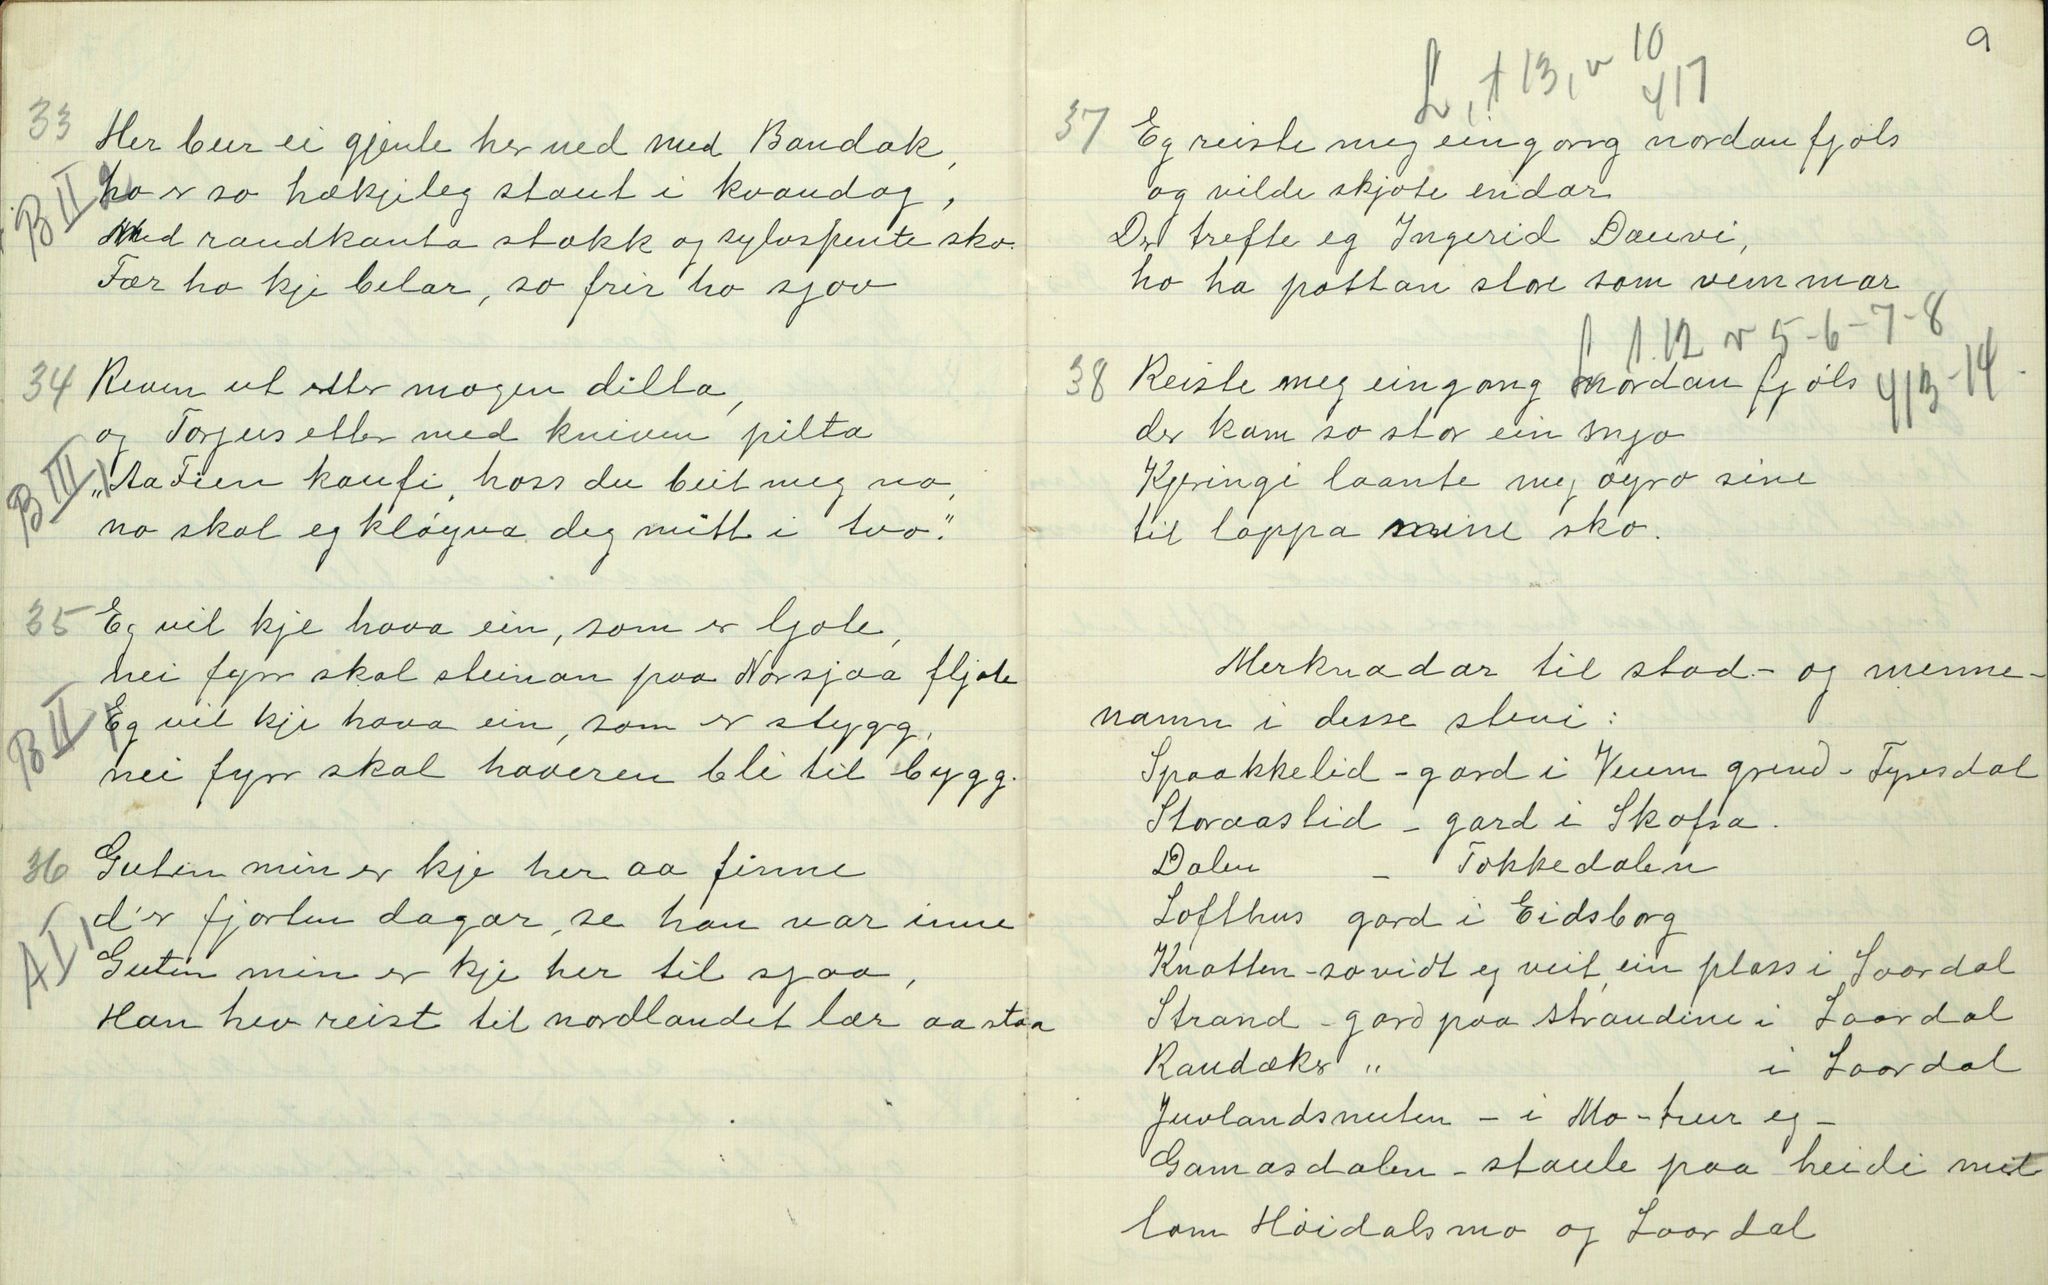 33 Her bur ei gjente her ned med Bandak,
B II 2 ho er so hækjeleg staut i kvaudag,
Med raudkanta stakk og sylvspente sko.
Fær ho kje belar, so frir ho sjov
34 Reven ut etter mogen dilta,
og Torjus etter med kniven pilta
B III 1 "Aa Fien kaufi, hoss du beit meg no,
no skal eg kløyva deg mitt i tvo."
35 Eg vil kje hava ein, som er ljote,
nei fyrr skal steinan paa Norsjaa fljote
B II 1 Eg vil kje hava ein, som er stygg,
nei fyrr skal haveren bli til bygg.
36 Guten min er kje her aa finne
d'er fjorten dagar, se han var inne
A I 1 Guten min er kje her til sjaa,
Han hev reist til nordlandet lær aa staa
9
L, t 13, v 10
417
37 Eg reiste meg eingong nordan fjøls
og vilde skjote endar
Der trefte eg Ingerid Dauvi,
ho ha pattan store som vemmar
L t. 12 v 5-6-7-8
413-14.
38 Reiste meg eingong nordan fjøls
der kom so stor ein snjo
Kjeringi laante meg øyro sine
til lappa mine sko.
Merknadar til stad- og menne-
namn i desse stevi:
Spaakkelid - gard i Veum grend - Fyresdal
Storaaslid - gard i Skafsa.
Dalen - Tokkedalen
Lofthus gard i Eidsborg
Knatten - so vidt eg veit, ein plass i Laardal
Strand - gard paa strandine i Laardal
Raudæker " i Laardal
Juvlandsnuten - i Mo - trur eg -
Gamasdalen - staule paa heidi mil
lom Høidalsmo og Laardal